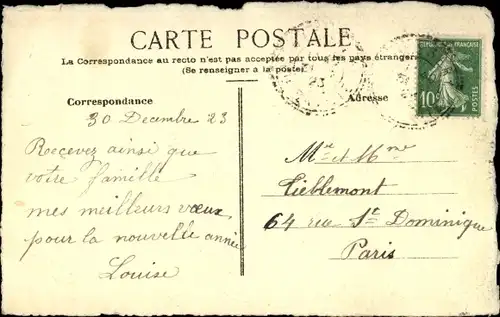 CARTE POSTALE
La Correspondance au recto n'est pas acceptée par tous les pays étrangers
(Se renseigner à la poste)
Correspondance
Adresse
30 Decembre 23
Recevez ainsi que
votre famille
mes meilleurs vœux
pour la nouvelle année
Louise
Mr et Mme
Lieblemont
64 rue St Dominique
Paris
10c
POSTES